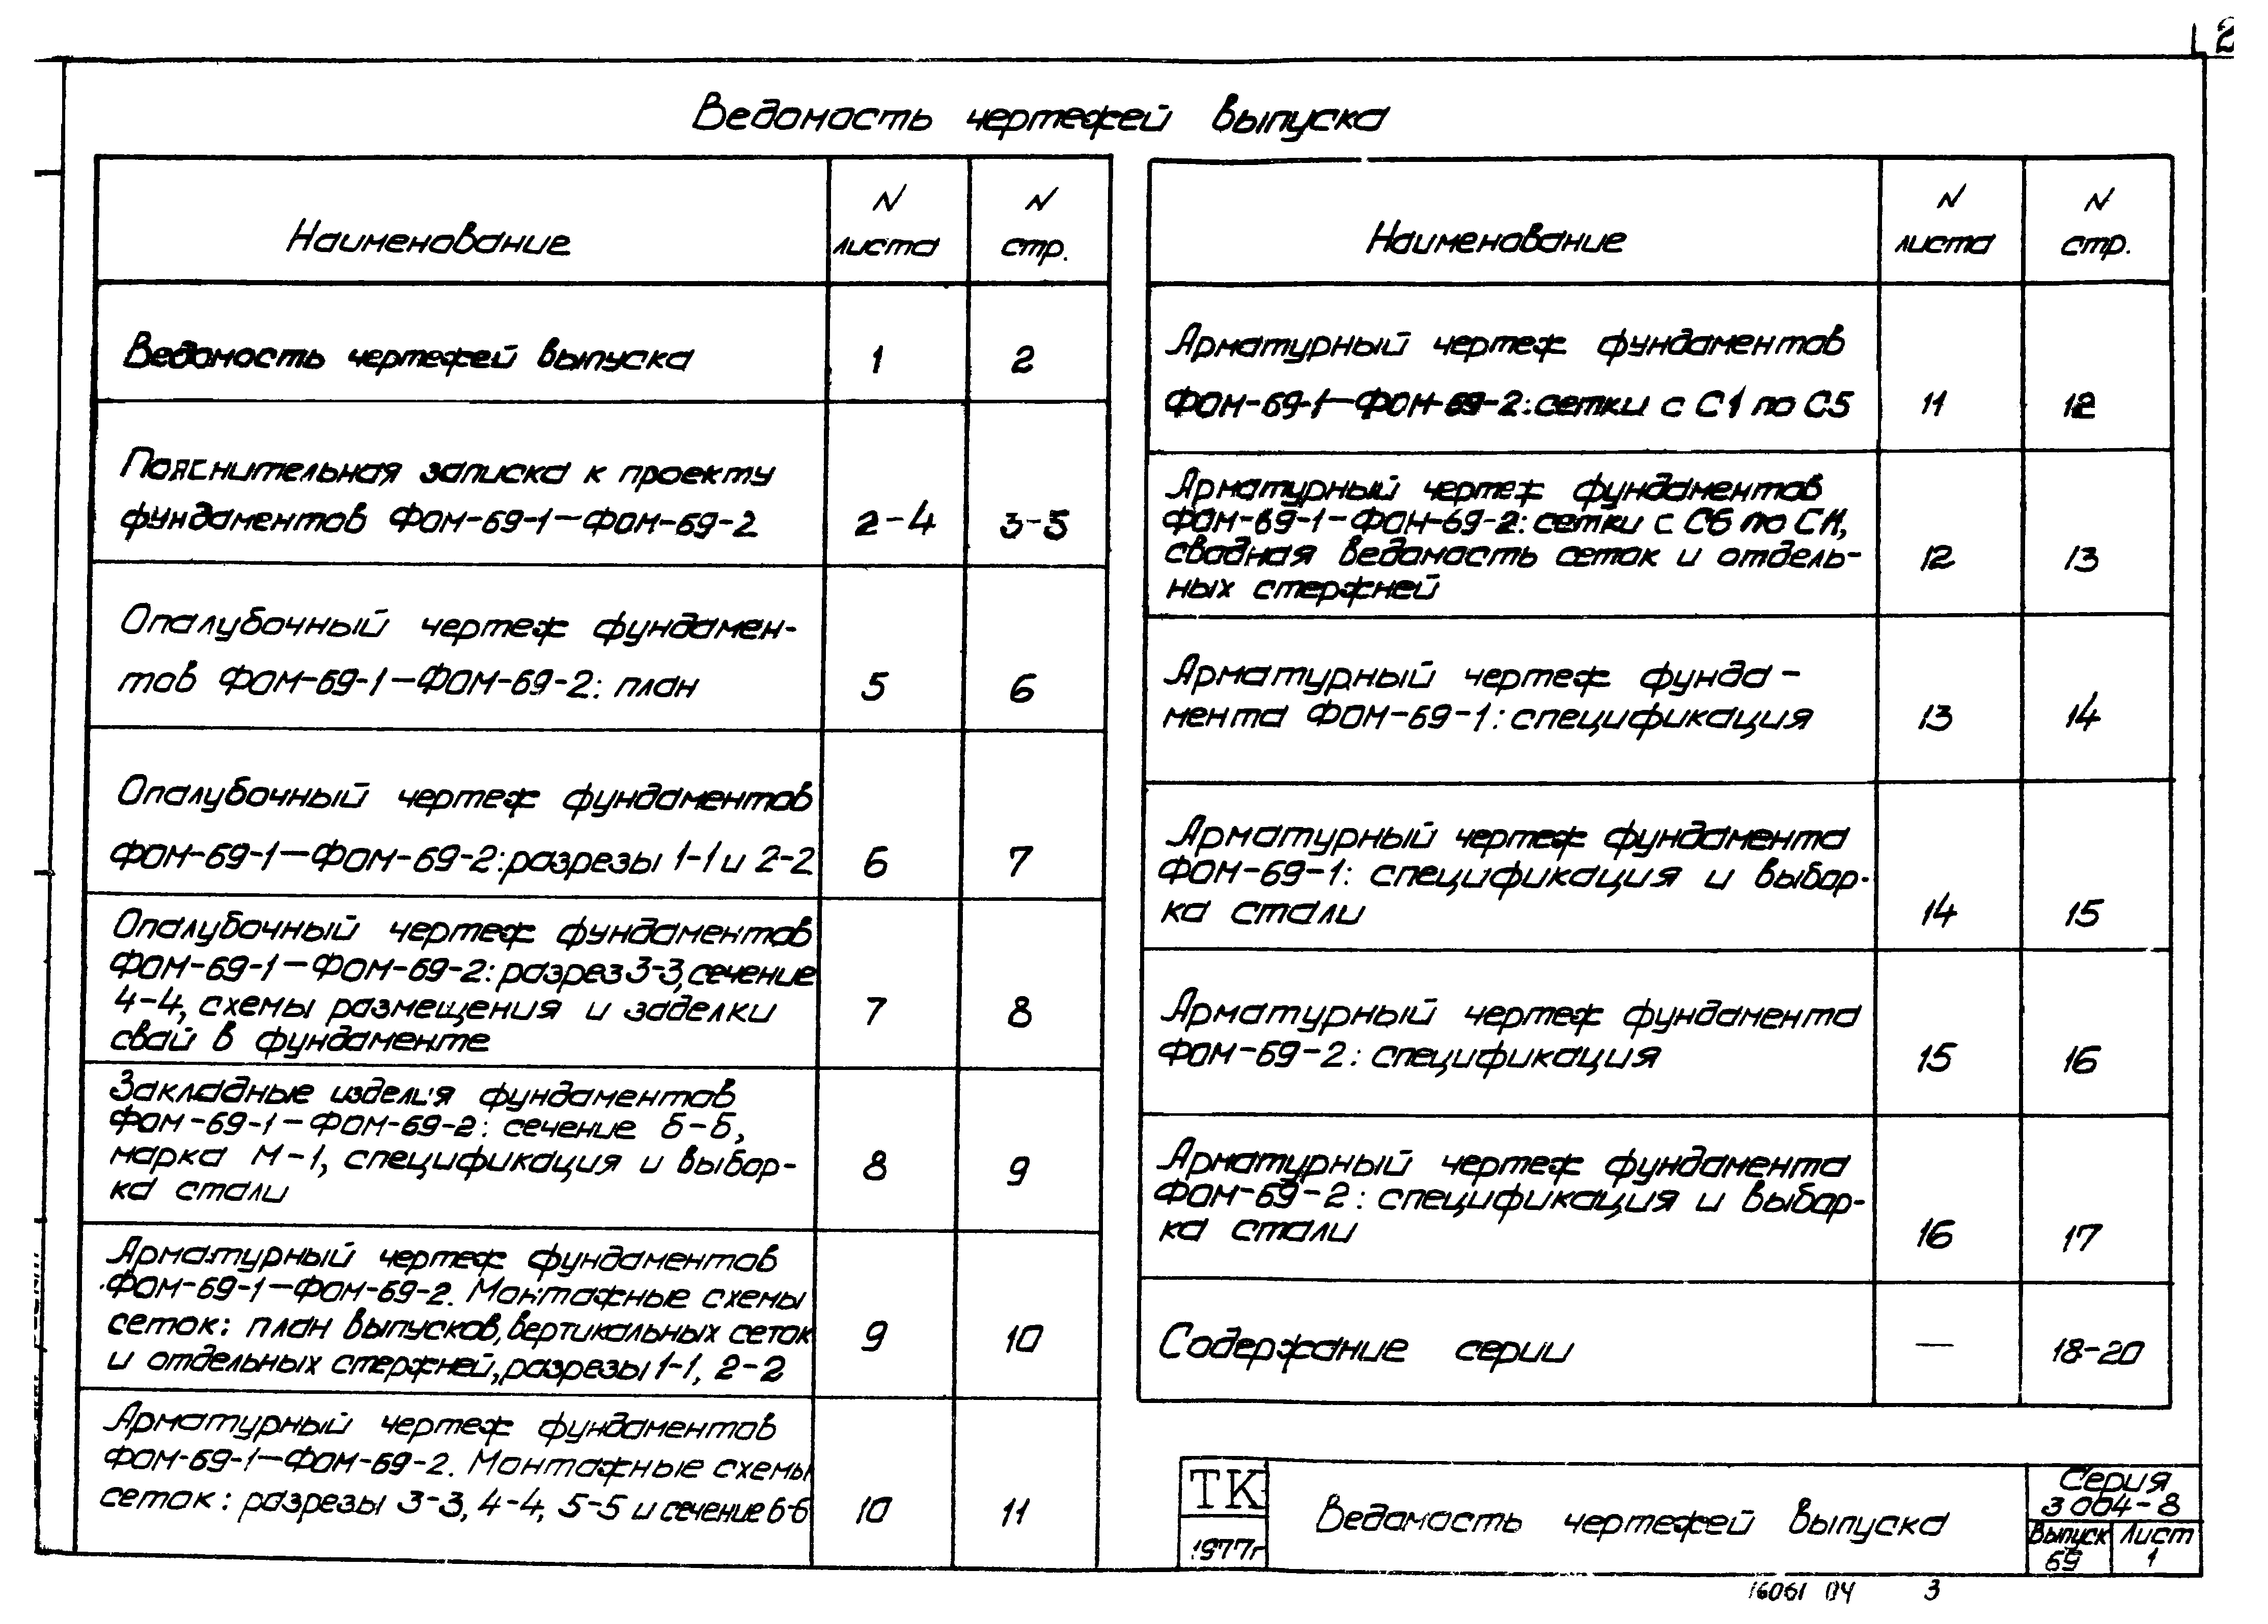 2
Ведомость чертежей выпуска
Наименование
N листа
N стр.
Ведомость чертежей выпуска 1 2
Пояснительная записка к проекту
фундаментов ФОМ-69-1—ФОМ-69-2 2-4 3-5
Опалубочный чертеж фундамен-
тов ФОМ-69-1—ФОМ-69-2: план 5 6
Опалубочный чертеж фундаментов
ФОМ-69-1—ФОМ-69-2: разрезы 1-1 и 2-2 6 7
Опалубочный чертеж фундаментов
ФОМ-69-1—ФОМ-69-2: разрез 3-3, сечение
4-4, схемы размещения и заделки 7 8
свай в фундаменте
Закладные изделия фундаментов
ФОМ-69-1—ФОМ-69-2: сечение Б-Б,
марка М-1, спецификация и выбор- 8 9
ка стали
Арматурный чертеж фундаментов
ФОМ-69-1—ФОМ-69-2. Монтажные схемы
сеток: план выпусков, вертикальных сеток 9 10
и отдельных стержней, разрезы 1-1, 2-2
Арматурный чертеж фундаментов
ФОМ-69-1—ФОМ-69-2. Монтажные схемы
сеток: разрезы 3-3, 4-4, 5-5 и сечение 6-6 10 11
Наименование
N листа
N стр.
Арматурный чертеж фундаментов
ФОМ-69-1—ФОМ-69-2: сетки с С1 по С5 11 12
Арматурный чертеж фундаментов
ФОМ-69-1—ФОМ-69-2: сетки с С6 по С11,
сводная ведомость сеток и отдель- 12 13
ных стержней
Арматурный чертеж фунда-
мента ФОМ-69-1: спецификация 13 14
Арматурный чертеж фундамента
ФОМ-69-1: спецификация и выбор-
ка стали 14 15
Арматурный чертеж фундамента
ФОМ-69-2: спецификация 15 16
Арматурный чертеж фундамента
ФОМ-69-2: спецификация и выбор-
ка стали 16 17
Содержание серии — 18-20
ТК
1977г
Ведомость чертежей выпуска
Серия
3 004-8
Выпуск
69
Лист
1
16061 04 3